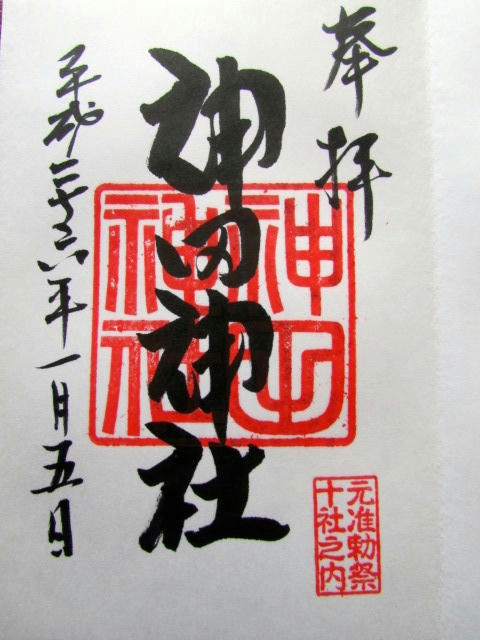 奉拝
神田神社
神田神社
平成二十六年一月五日
元准勅祭
十社之内